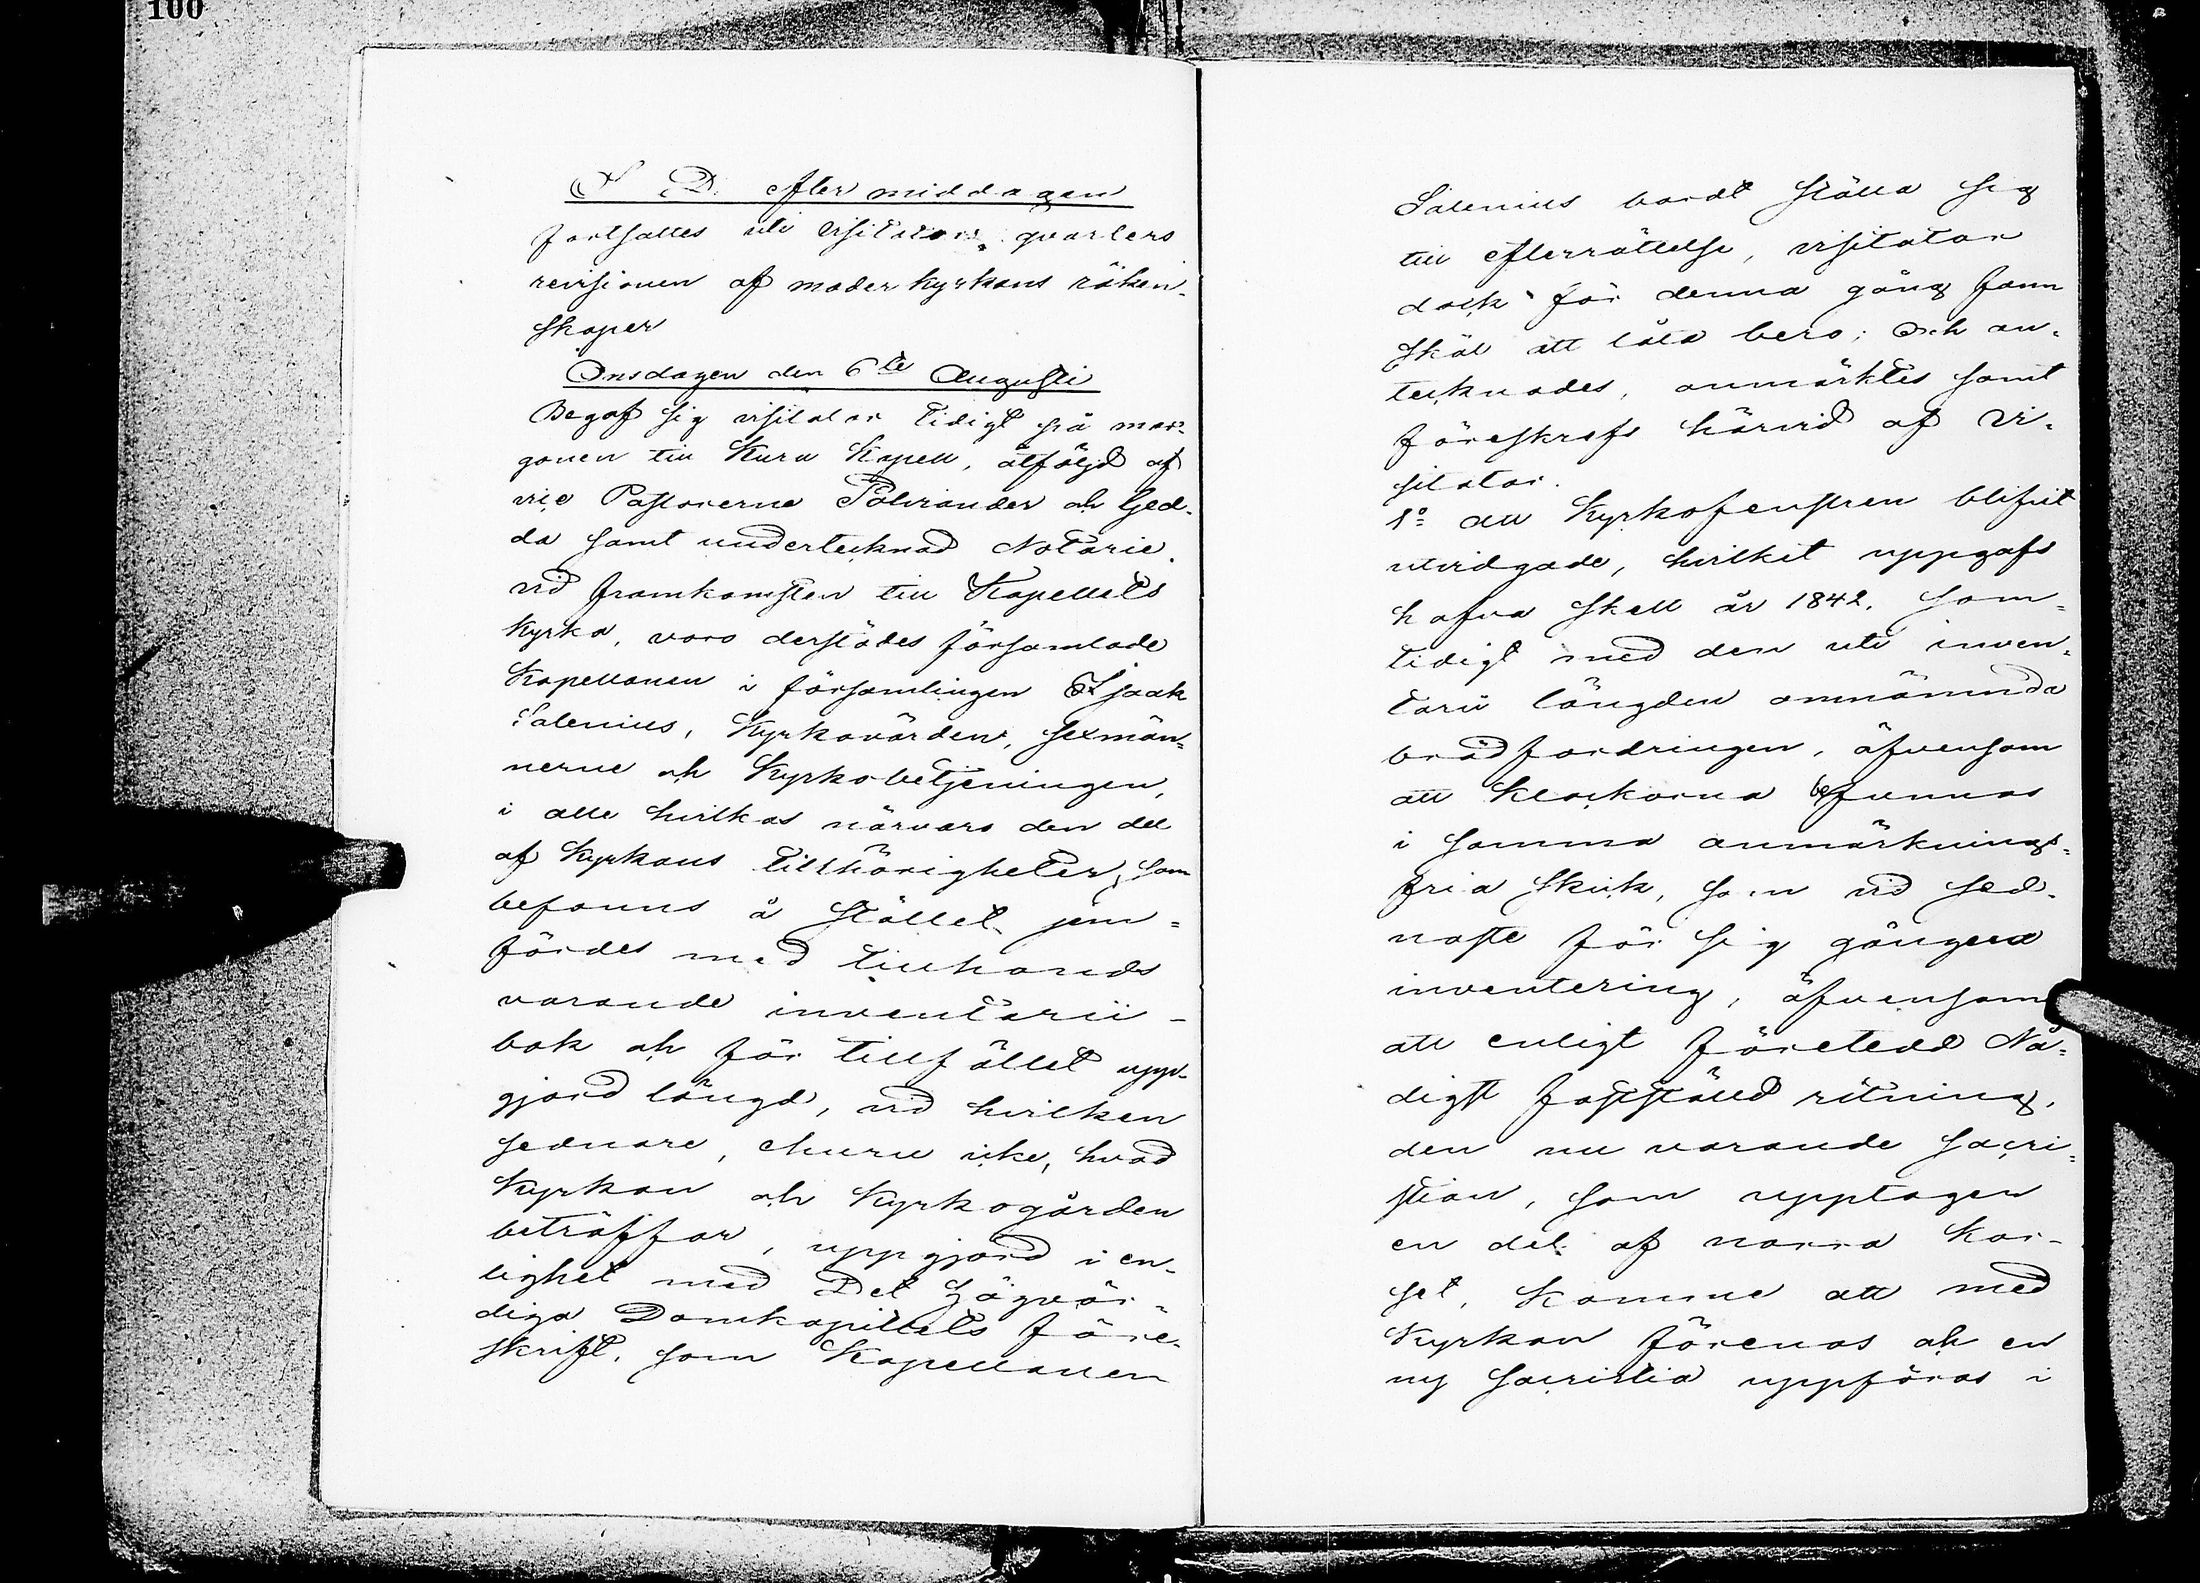 100
S D. eftermiddagen
fortsattes uti visitators qvarters
revisionen af moderkyrkans räken-
skaper
Onsdagen den 6te Augusti
Begaf sig visitator tidigt på mor-
gonen till Kuru Kapell, åtföljd af
vice Pastorerne Polviander och Ged-
da samt undertecknad Notarie.
vid framkomsten till Kapellets
Kyrka, voro derstädes församlade
Kapellanen i församlingen Isaak
Salenius, Kyrkovärden, sexmän-
nerne och Kyrkobetjeningen,
i alle hvilkas närvaro den del
af Kyrkans tillhörigheter, som
befanns å stället jem-
fördes med tillhands
varande inventarii-
bok och för tillfället upp-
gjord längd, vid hvilken
sednare, ehuru icke, hvad
Kyrkan och Kyrkogården
beträffar, uppgjord i en-
lighet med Det Högvör-
diga Domkapitlets före-
skrift, som Kapellanen
Salenius bordt ställa sig
till efterrättelse, visitator
dock för denna gång fann
skäl att låta bero; Och an-
tecknades, anmärktes samt
föreskrefs härvid af vi-
sitator.
1o att Kyrkofenstren blifvit
utvidgade, hvilket uppgafs
hafva skett år 1842, sam-
tidigt med den uti inven-
tarii längden omnämnda
brädfordringen, äfvensom
att Klockorna befunnos
i samma anmärknings-
fria skick, som vid sed-
naste för sig gångna
inventering, äfvensom
att enligt företedd Nå-
digst fastställd ritning,
den nu varande sacri-
stian, som upptagen
en del af norra kor-
set, komme att med
Kyrkan förenas och en
ny sacristia uppföras i